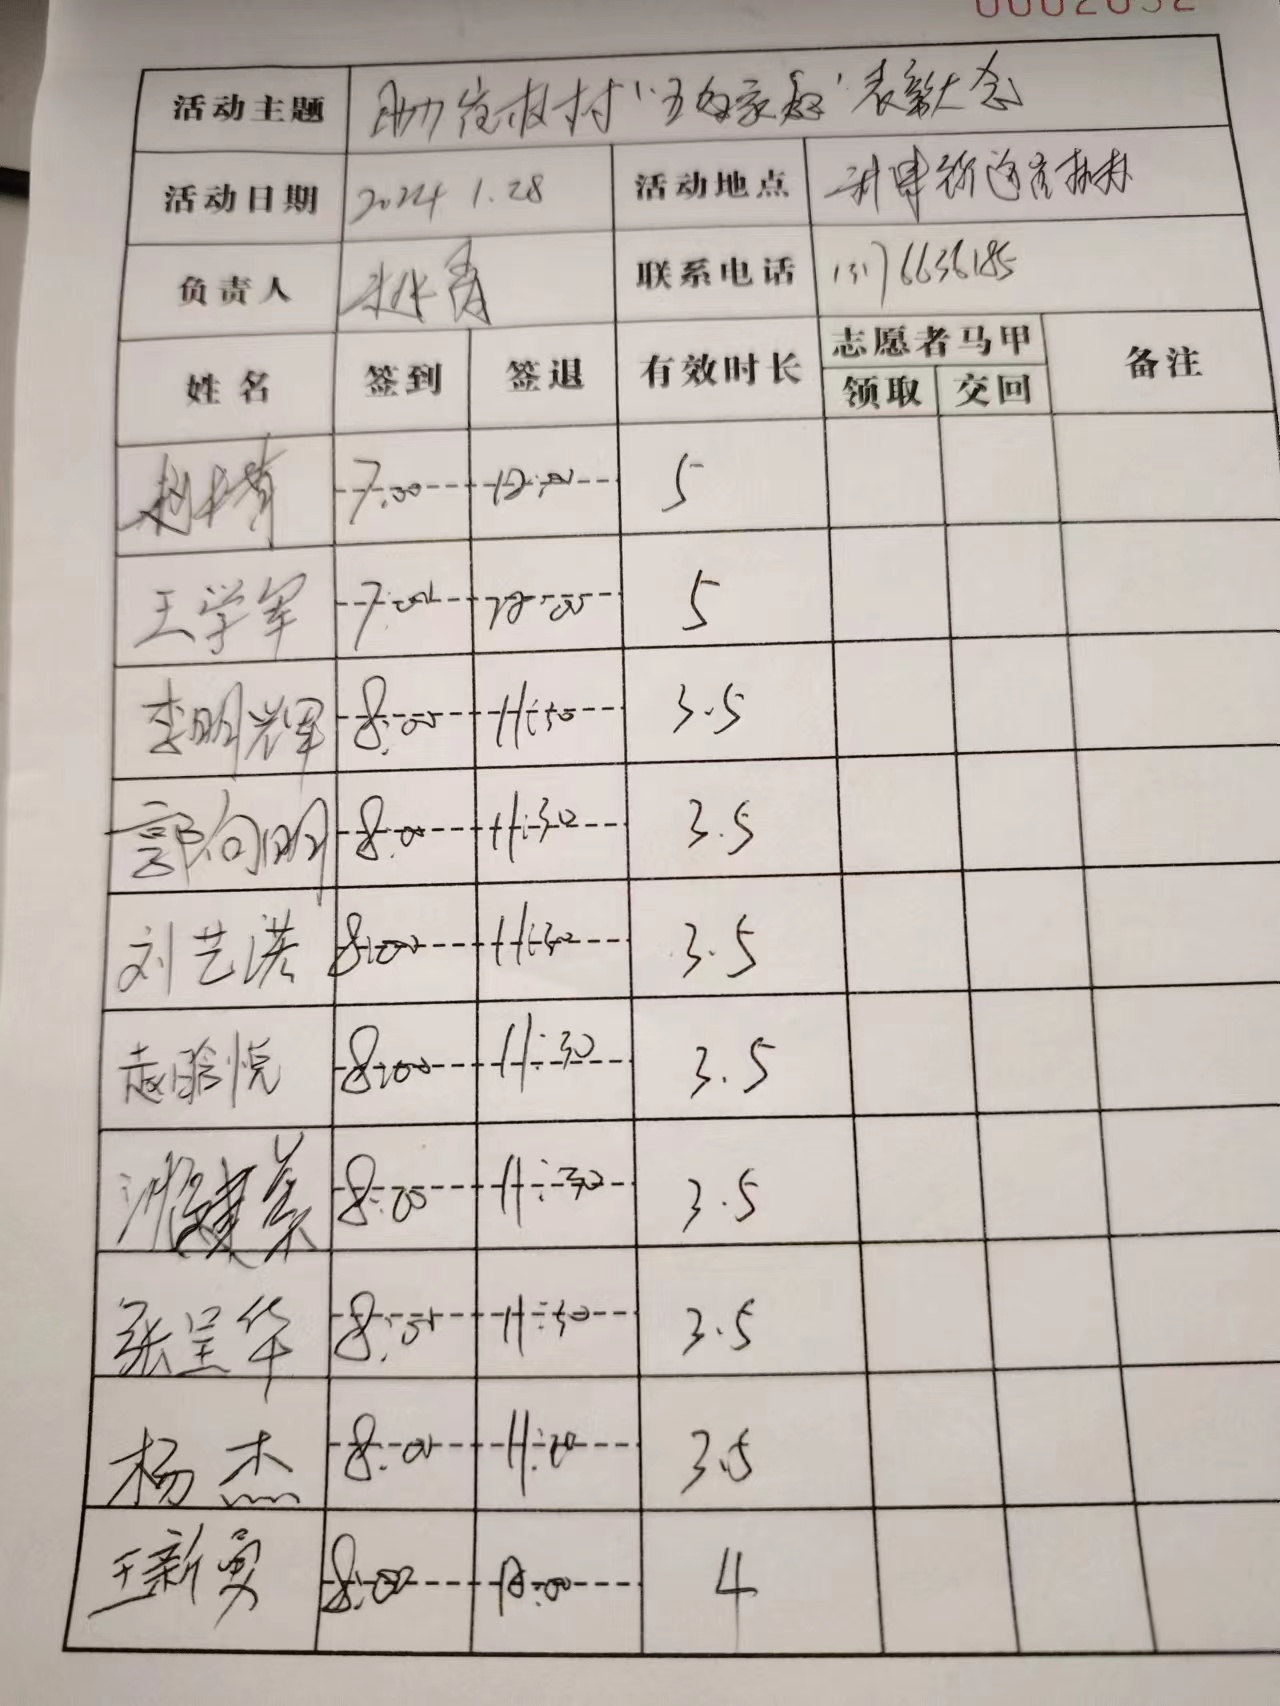 活动主题 助力崔板村“五好家庭”表彰大会
活动日期 2024 1.28 活动地点
负责人 联系电话 13176636185
姓名 签到 签退 有效时长 志愿者马甲 备注
领取 交回
7:00 12:00 5
王学军 7:00 12:00 5
李明辉 8:00 11:30 3.5
郭向明 8:00 11:30 3.5
刘艺洪 8:00 11:30 3.5
赵晗悦 8:00 11:30 3.5
8:00 11:30 3.5
张呈华 8:00 11:30 3.5
杨杰 8:00 11:30 3.5
王新勇 8:00 12:00 4